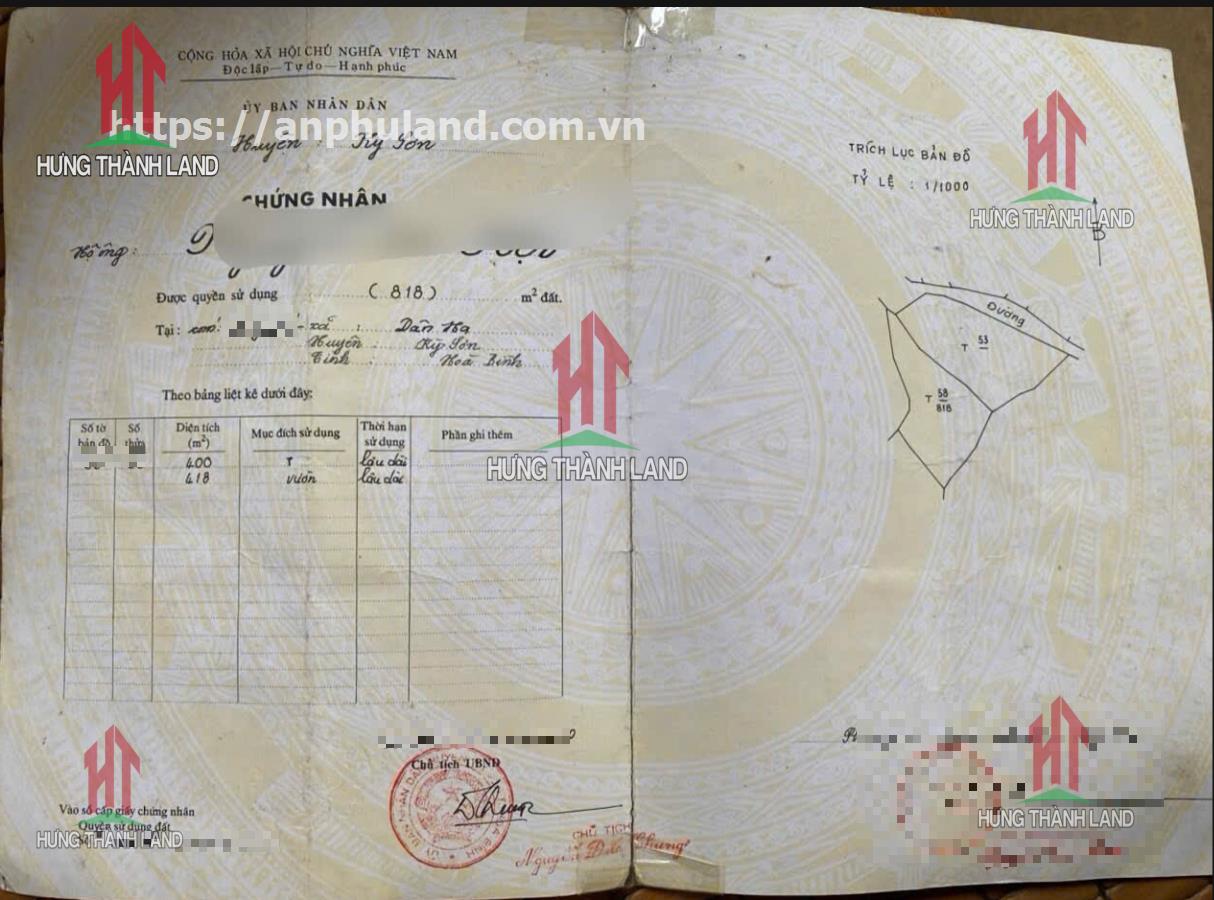 CỘNG HÒA XÃ HỘI CHỦ NGHĨA VIỆT NAM
Độc lập — Tự do — Hạnh phúc
ỦY BAN NHÂN DÂN
https://anphuland.com.vn
Huyện : Kỳ Sơn
HƯNG THÀNH LAND
CHỨNG NHÂN
Hộ ông:
Được quyền sử dụng (818) m² đất.
Tại: xã : Dân Hạ
Huyện : Kỳ Sơn
Tỉnh : Hoà Bình
Theo bảng liệt kê dưới đây:
Số tờ bản đồ Số thửa Diện tích (m²) Mục đích sử dụng Thời hạn sử dụng Phần ghi thêm
400 T lâu dài
418 vườn lâu dài
HƯNG THÀNH LAND
Chủ tịch UBND
Vào sổ cấp giấy chứng nhận
Quyền sử dụng đất
HƯNG THÀNH LAND
CHỦ TỊCH
Nguyễn Đức Chung
TRÍCH LỤC BẢN ĐỒ
TỶ LỆ : 1/1000
HƯNG THÀNH LAND
B
Đường
T 53
T 58
818
HƯNG THÀNH LAND